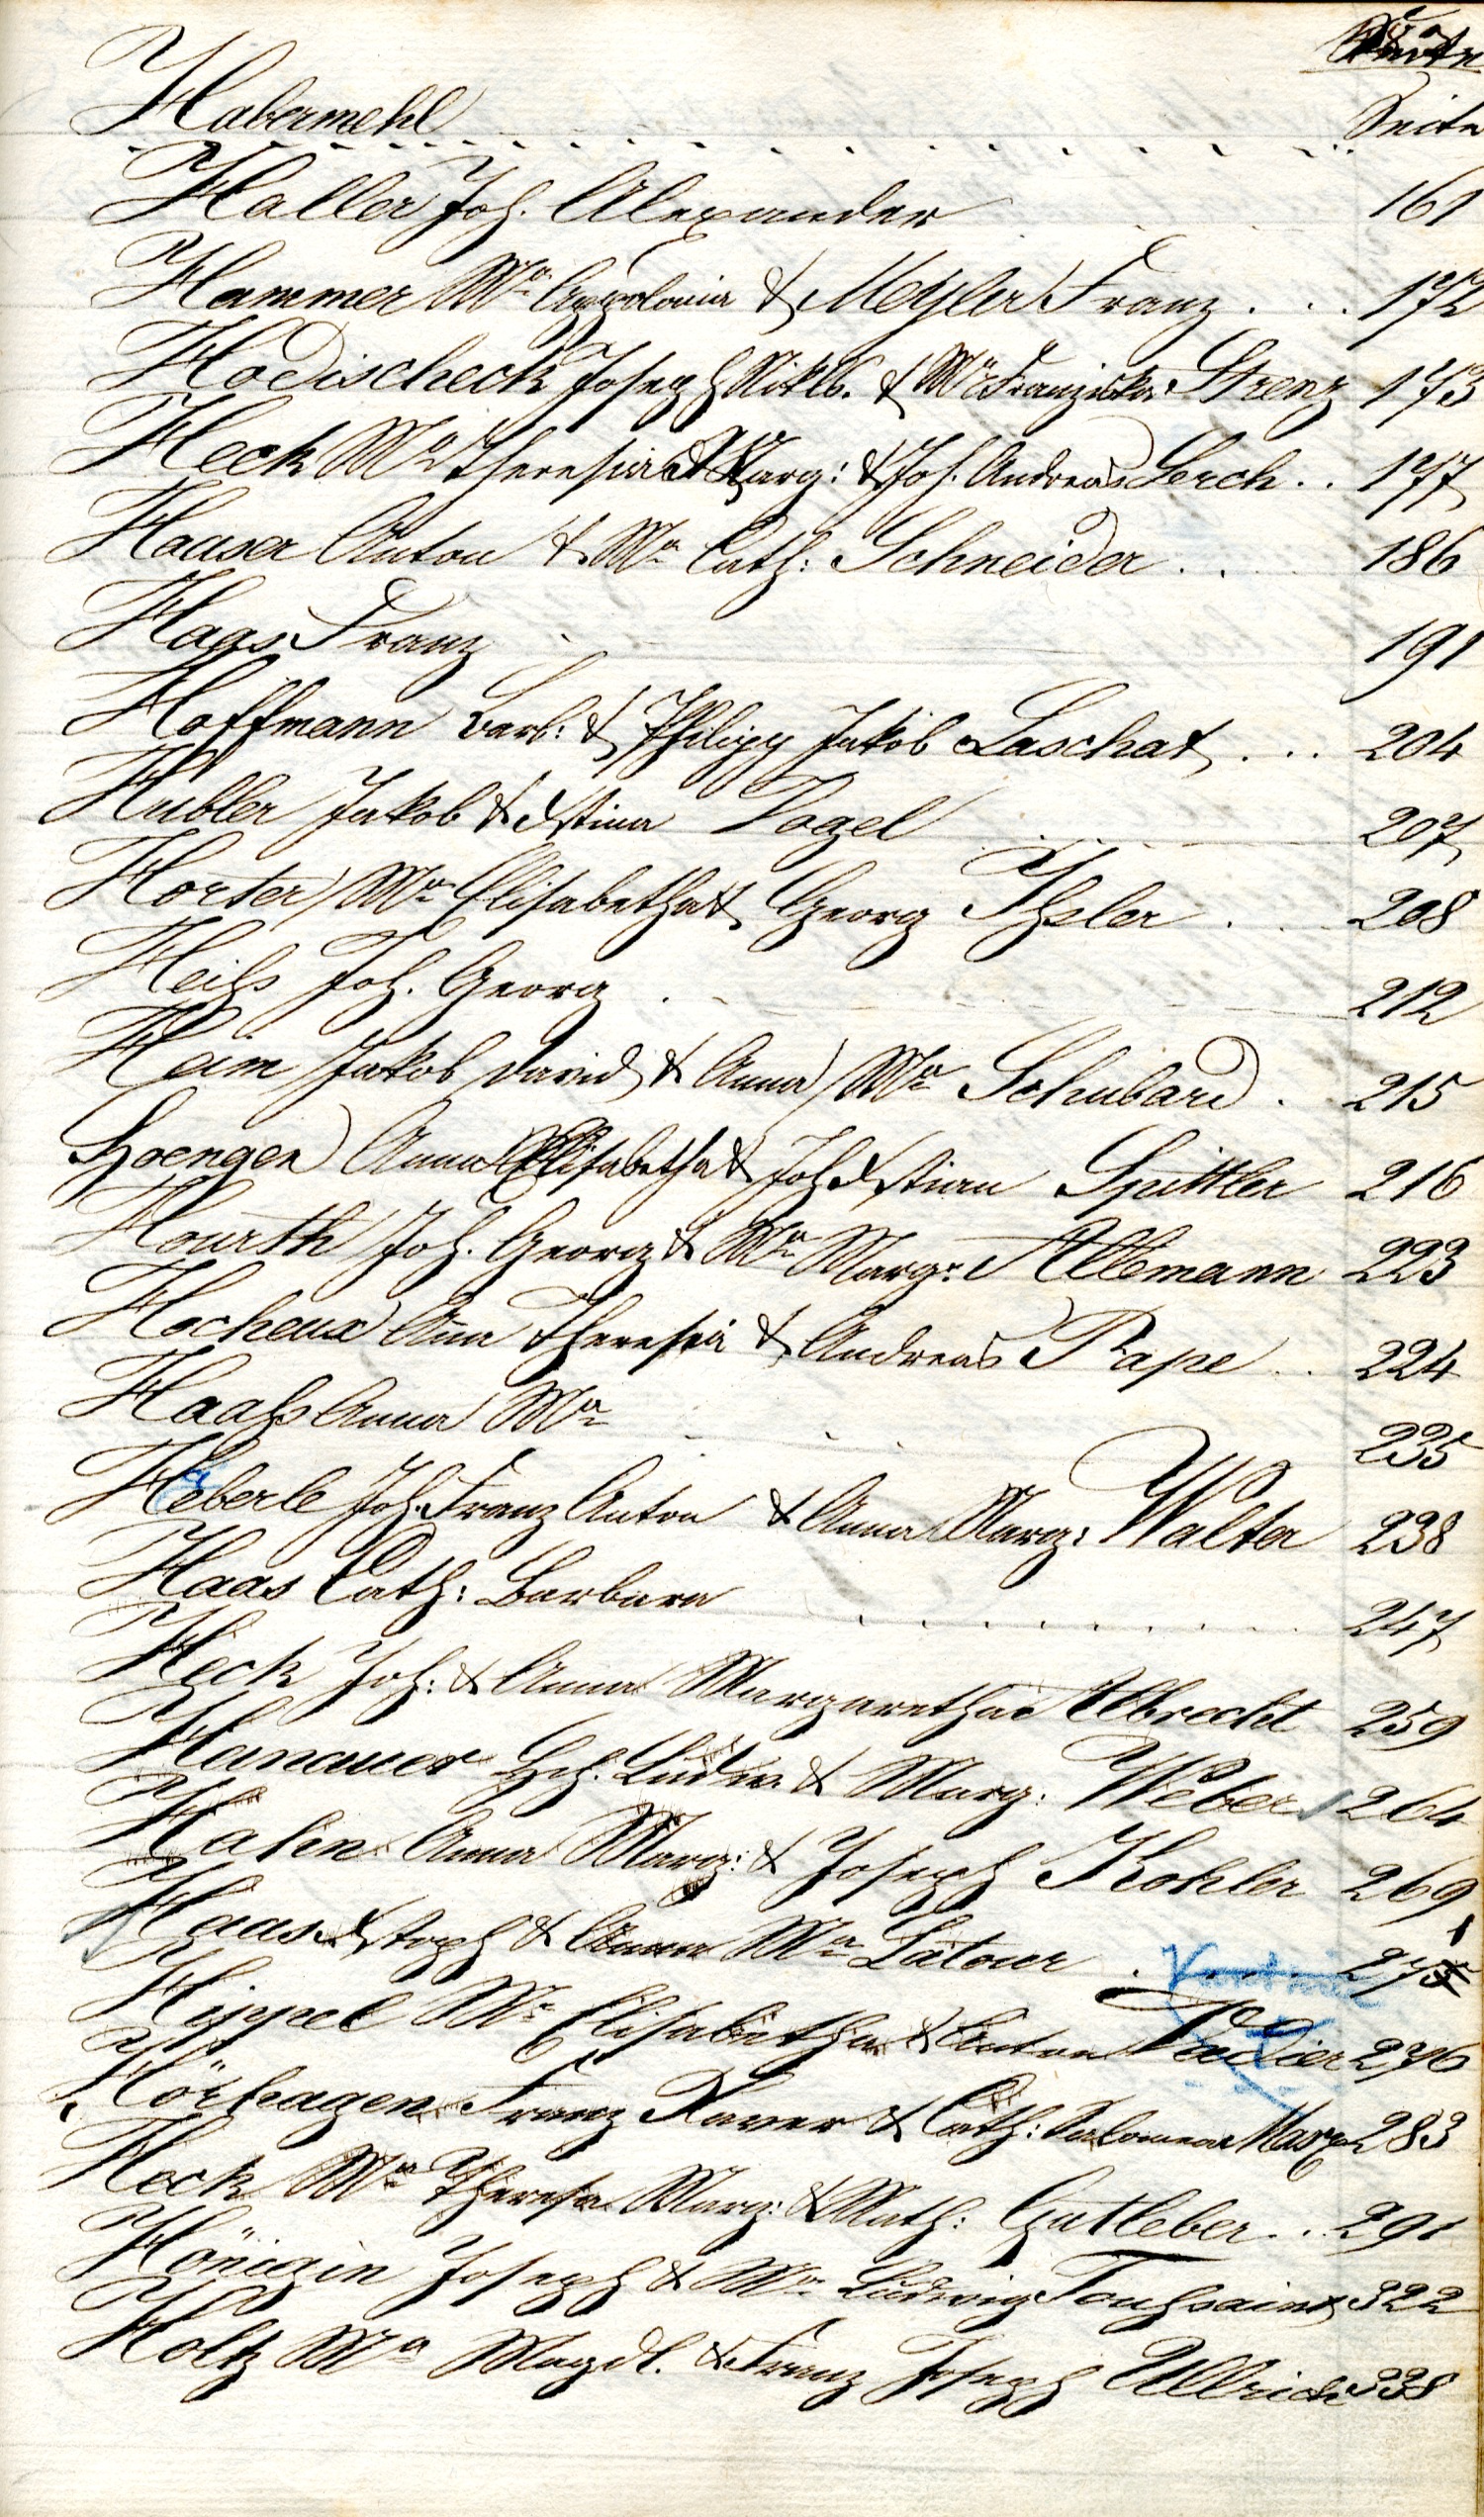 Seite
Habermehl Seite
Haller Joh. Alexander 161
Hammer Mª Appolonia & Meyler Franz . . . 172
Hodischeck Joseph Nikls. & Mª Franziska Strenz 173
Heck Mª Theresia Marg: & Joh. Andreas Lerch . . 177
Hauser Anton & Mª Cath: Schneider . . 186
Haas Franz 191
Hoffmann Barb: & Philipp Jakob Laschat . . . 204
Hubler Jakob & Xstina Vogel 207
Horter Mª Elisabetha & Georg Ihsler . . 208
Heihs Joh. Georg . 212
Heim Jakob David & Anna Mª Schubard . 215
Hoengen Anna Elisabetha & Joh Xstian Spittler 216
Hourth Joh. Georg & Mª Marg: Allemann 223
Hocheux Ana Theresia & Andreas Pape . . 224
Haahs Anna Mª 235
Heberle Joh. Franz Anton & Anna Marg: Walter 238
Haas Cath: Barbara 247
Heck Joh: & Anna Margaretha Albrecht 259
Hanauer Hch. Ludw. & Marg: Weber 264
Hahn Anna Marg: & Joseph Kohler 269
Haas Xstoph & Anna Mª Latour 275
Hippel Mª Elisabetha & Anton 276
Hörhagen Franz Xaver & Cath: Salomea Marx 283
Heck Mª Theresa Marg: & Math: Gutleber . . 291
Hönigin Joseph & Mª Ludwig Touhsaint 322
Holtz Mª Magdl. & Franz Joseph Ullrich 338